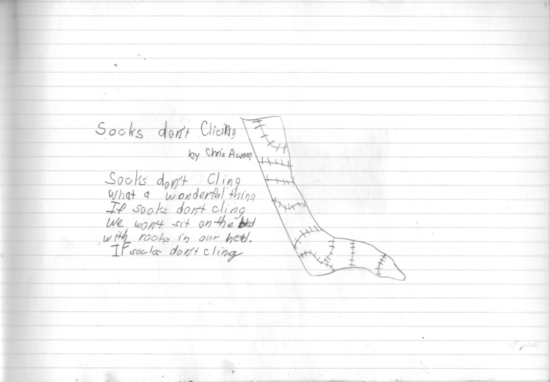 Socks don't Clicing
by Chris
Socks don't Cling
What a wonderful thing
If socks don't cling
We won't sit on the bed
with rocks in our hed.
If socks don't cling